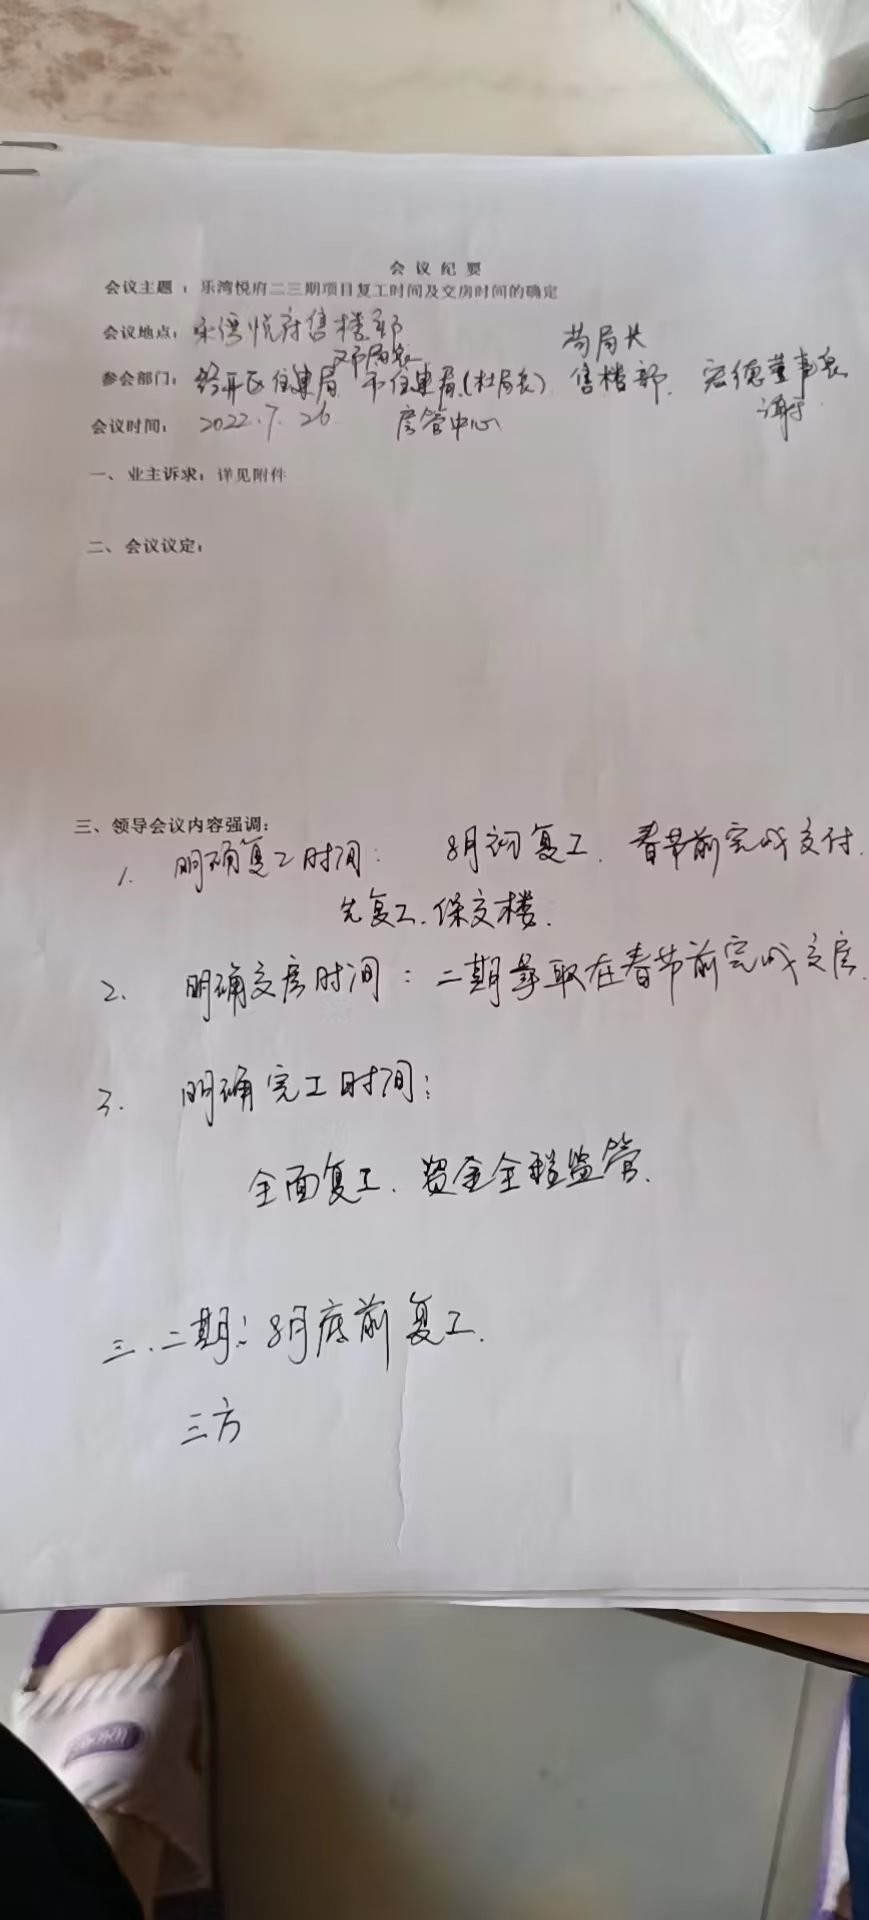 会议纪要
会议主题：乐湾悦府二三期项目复工时间及交房时间的确定
会议地点：乐湾悦府售楼部
邓局长 苟局长
参会部门：经开区住建局 市住建局(杜局长) 售楼部. 宏德董事长
会议时间：2022.7.26 房管中心
一、业主诉求：详见附件
二、会议议定：
三、领导会议内容强调：
1. 明确复工时间： 8月初复工. 春节前完成交付.
先复工.保交楼.
2. 明确交房时间：二期争取在春节前完成交房.
3. 明确完工时间：
全面复工. 资金全程监管.
三.二期：8月底前复工.
三方